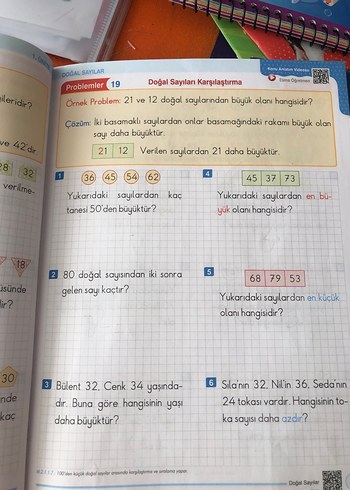 DOĞAL SAYILAR
Problemler 19
Doğal Sayıları Karşılaştırma
Örnek Problem: 21 ve 12 doğal sayılarından büyük olanı hangisidir?
Çözüm: İki basamaklı sayılardan onlar basamağındaki rakamı büyük olan
sayı daha büyüktür.
21 12 Verilen sayılardan 21 daha büyüktür.
1 36 45 54 62
Yukarıdaki sayılardan kaç
tanesi 50'den büyüktür?
2 80 doğal sayısından iki sonra
gelen sayı kaçtır?
3 Bülent 32, Cenk 34 yaşında-
dır. Buna göre hangisinin yaşı
daha büyüktür?
4 45 37 73
Yukarıdaki sayılardan en bü-
yük olanı hangisidir?
5 68 79 53
Yukarıdaki sayılardan en küçük
olanı hangisidir?
6 Sıla'nın 32, Nil'in 36, Seda'nın
24 tokası vardır. Hangisinin to-
ka sayısı daha azdır?
Doğal Sayılar
ileridir?
ve 42'dir.
28 32
verilme-
18
30
kaç